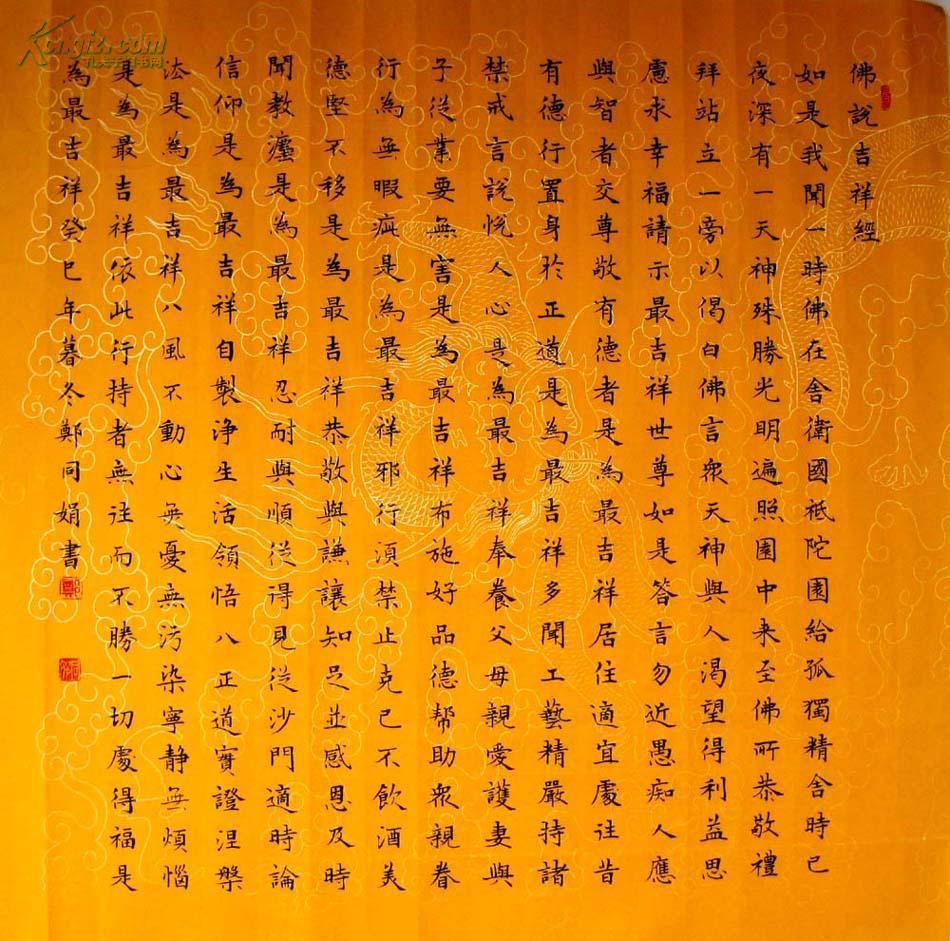 Kongfz.com
孔夫子旧书网
佛說吉祥經
如是我聞一時佛在舍衛國祇陀園給孤獨精舍時已
夜深有一天神殊勝光明遍照園中来至佛所恭敬禮
拜站立一旁以偈白佛言眾天神與人渴望得利益思
慮求幸福請示最吉祥世尊如是答言勿近愚痴人應
與智者交尊敬有德者是為最吉祥居住適宜處往昔
有德行置身於正道是為最吉祥多聞工藝精嚴持諸
禁戒言說悅人心是為最吉祥奉養父母親愛護妻與
子從業要無害是為最吉祥布施好品德幫助眾親眷
行為無暇疵是為最吉祥邪行須禁止克己不飲酒美
德堅不移是為最吉祥恭敬與謙讓知足並感恩及時
聞教灋是為最吉祥忍耐與順從得見從沙門適時論
信仰是為最吉祥自製淨生活領悟八正道實證涅槃
法是為最吉祥八風不動心無憂無污染寧静無煩惱
是為最吉祥依此行持者無往而不勝一切處得福是
為最吉祥癸巳年暮冬鄭同娟書